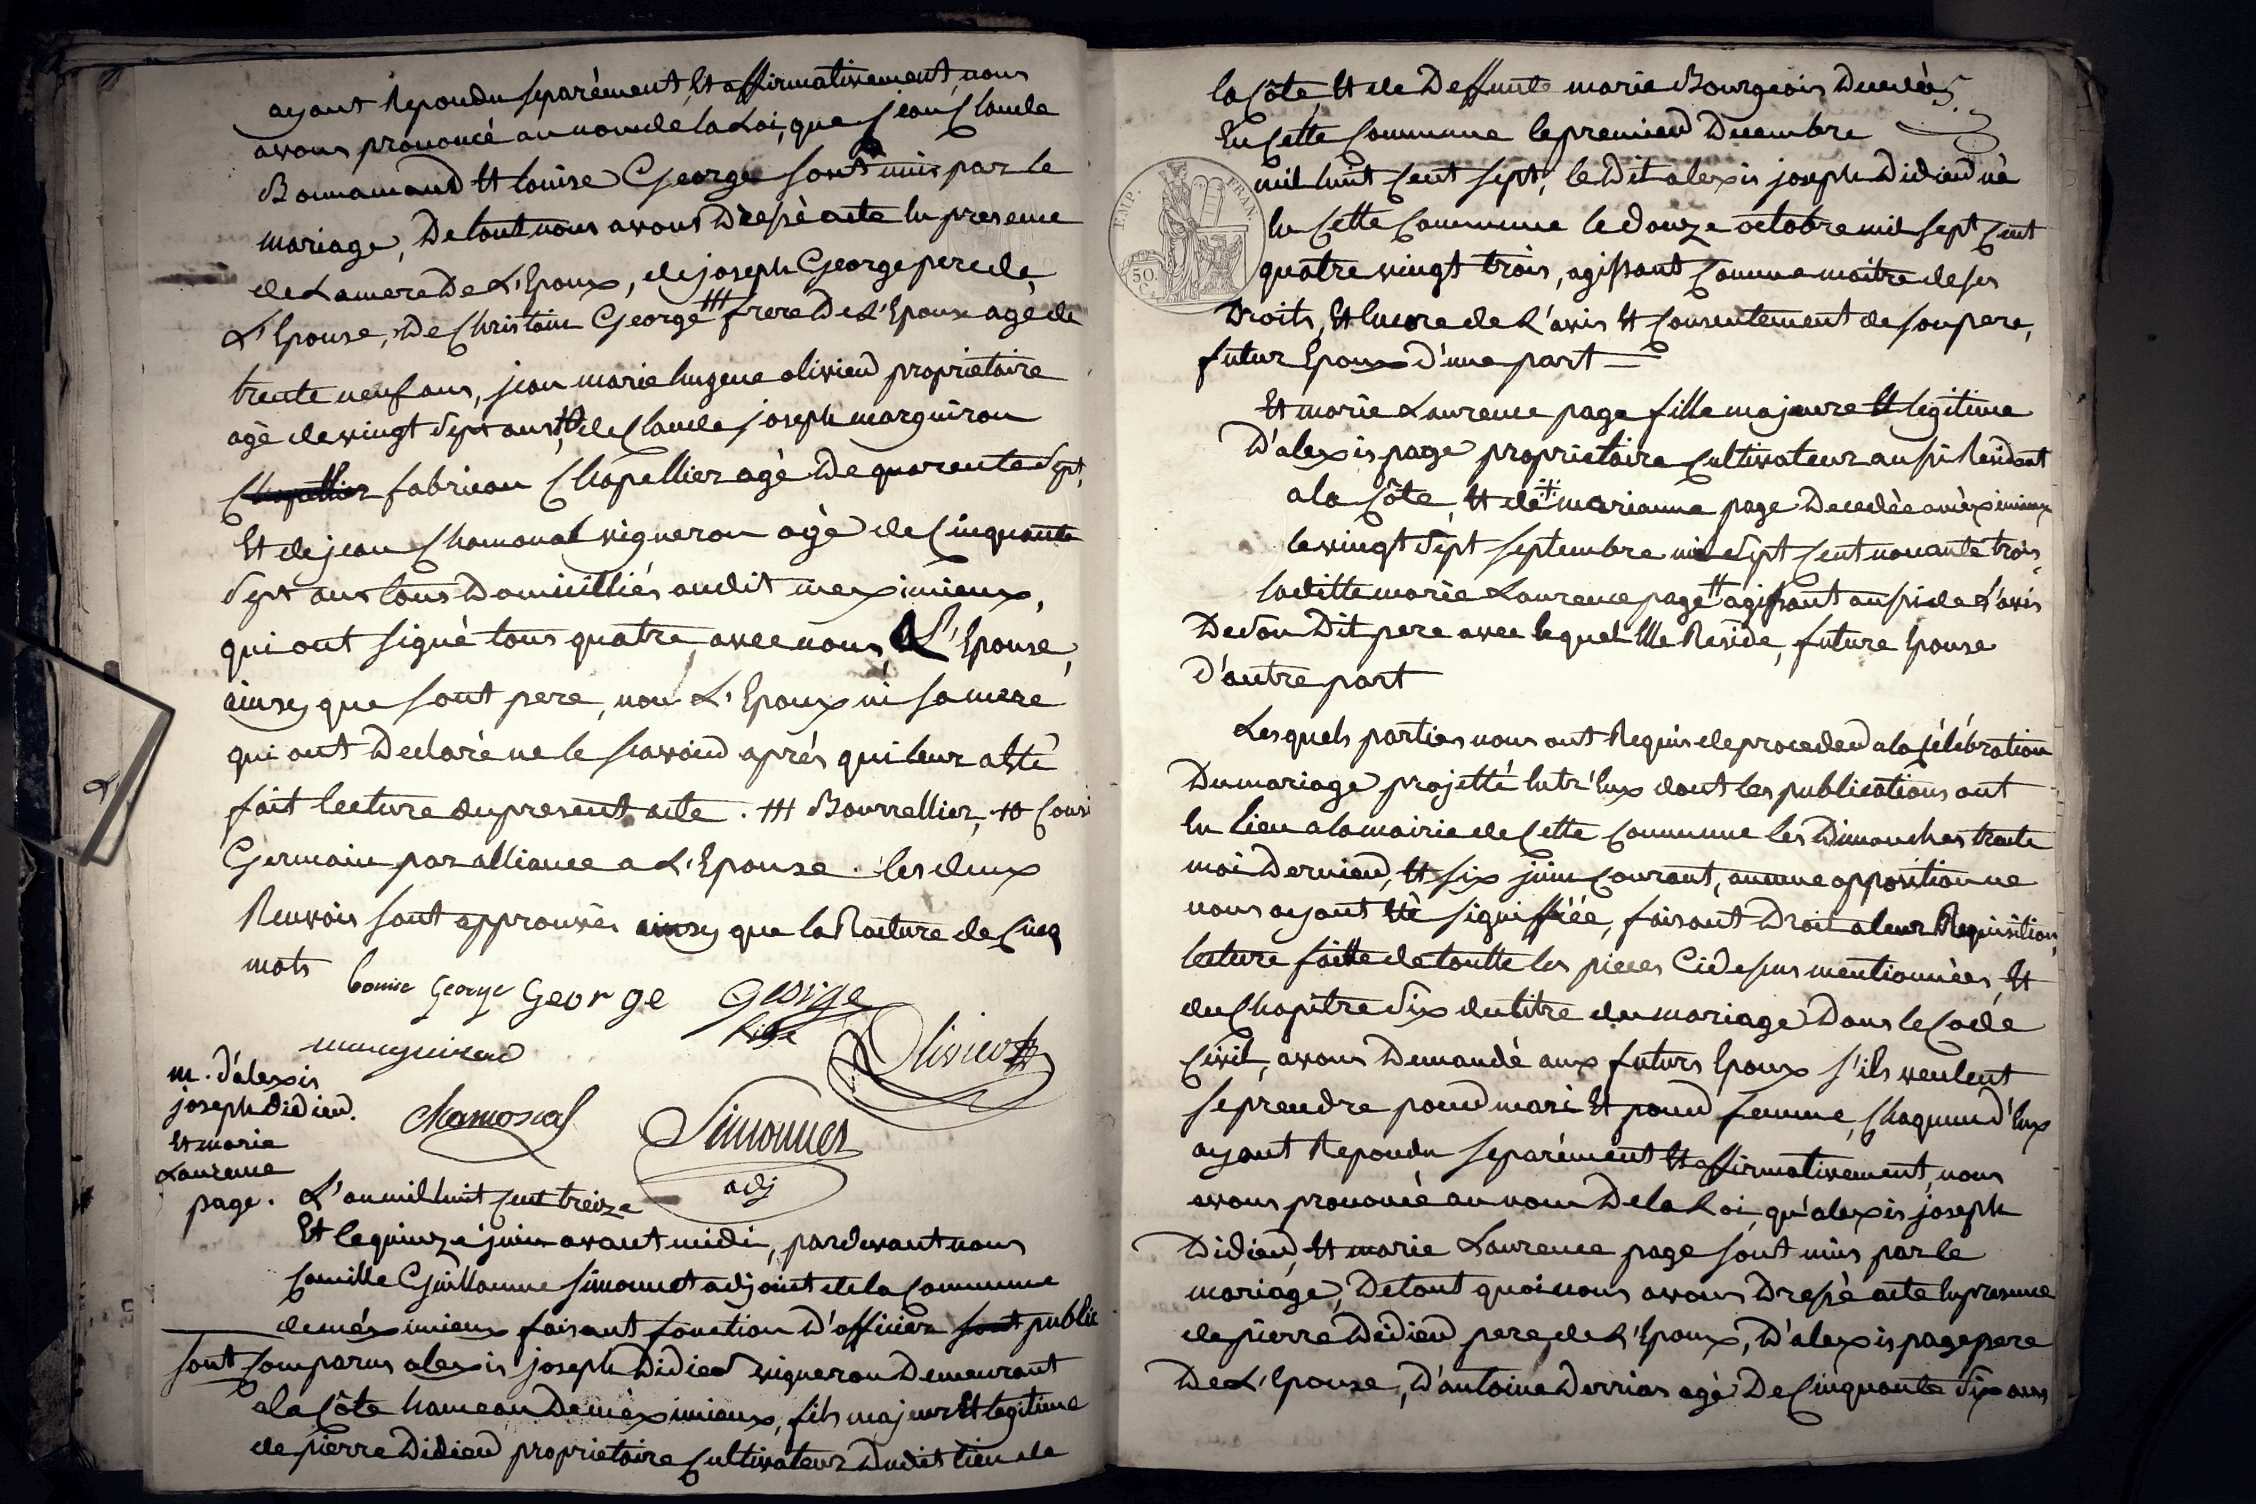 ayant Repondu separément, Et affirmativement, nous
avons prononcé au nom de la Loi, que jean Claude
Bonnamand Et louise George sont unis par le
mariage, De tout nous avons Dressé acte En presence
de La mere De L'Epoux, de joseph George pere de
L'Epouse, De Christain George ttt frere De L'Epouse agé de
trente neuf ans, jean marie Eugene olivier proprietaire
agé de vingt sept ans, tt de Claude joseph marguiron
Chapellier fabrican Chapellier agé De quarente sept,
Et de jean Chamonal vigneron agé de Cinquante
sept ans tous Domicilliés audit meximieux,
qui ont signé tous quatre avec nous, L'Epouse,
ainsy que sont pere, non L'Epoux ni sa mere
qui ont Declaré ne le scavoir aprés qui leur a Eté
fait lecture du present acte . ttt Bourrellier, tt Cousi
Germain par alliance a L'Epouse . les deux
Renvois sont approuvés ainsy que la Rature de Cinq
mots
louise George George George
fils
Olivier
marguiron
m. d'alexis
joseph didier.
Et marie
Laurence
page.
Chamonal
Simonnet
adj
L'an mil huit cent treize
Et le quinze juin avant midi, pardevant nous
Camille Guillaume simonnet adjoint de la Commune
de méximieux faisant fonction D'officier sont public
sont Comparus alexis joseph Didier vigneron Demeurant
a la Côte hameau De méximieux, fils majeur Et legitime
de pierre Didier proprietaire Cultivateur Dudit lieu de
la Côte, Et de Deffunte marie Bourgeois Decedée
En Cette Commune le premier Decembre
EMP. FRAN.
50 C.
mil huit Cent sept, le Dit alexis joseph Didier né
En Cette Commune le douze octobre mil sept Cent
quatre vingt trois, agissant Comme maitre de ses
Droits, Et Encore de L'avis Et Consentement de son pere,
futur Epoux D'une part =
Et marie Laurence page fille majeure Et legitime
D'alexis page proprietaire Cultivateur aussi Residant
a la Côte, Et de marianne page Decedée a méximieux
le vingt sept septembre mil sept Cent nonante trois,
la ditte marie Laurence page tt agissant aussi de L'avis
De son Dit pere avec lequel Elle Reside, future Epouse
D'autre part
Lesquels parties nous ont Requis de proceder a la Célébration
Du mariage projetté Entr'Eux dont les publications ont
Eu lieu a la mairie de Cette Commune les Dimanches trente
mai Dernier, Et six juin Courant, aucune opposition ne
nous ayant Eté signiffiéé, faisant Droit a leur Requisition,
lecture faitte de toutte les pieces Cidesus mentionnées, Et
du Chapitre six du titre du mariage Dans le Code
Civil, avons Demandé aux futurs Epoux s'ils veulent
se prendre pour mari Et pour femme, Chaqun d'Eux
ayant Repondu separément Et affirmativement, nous
avons prononcé au nom De la Loi, qu'alexis joseph
Didier, Et marie Laurence page sont unis par le
mariage, De tout quoi nous avons Dressé acte En presence
de pierre Didier pere de L'Epoux, D'alexis page pere
De L'Epouse, D'antoine Derrias agé De Cinquante six ans